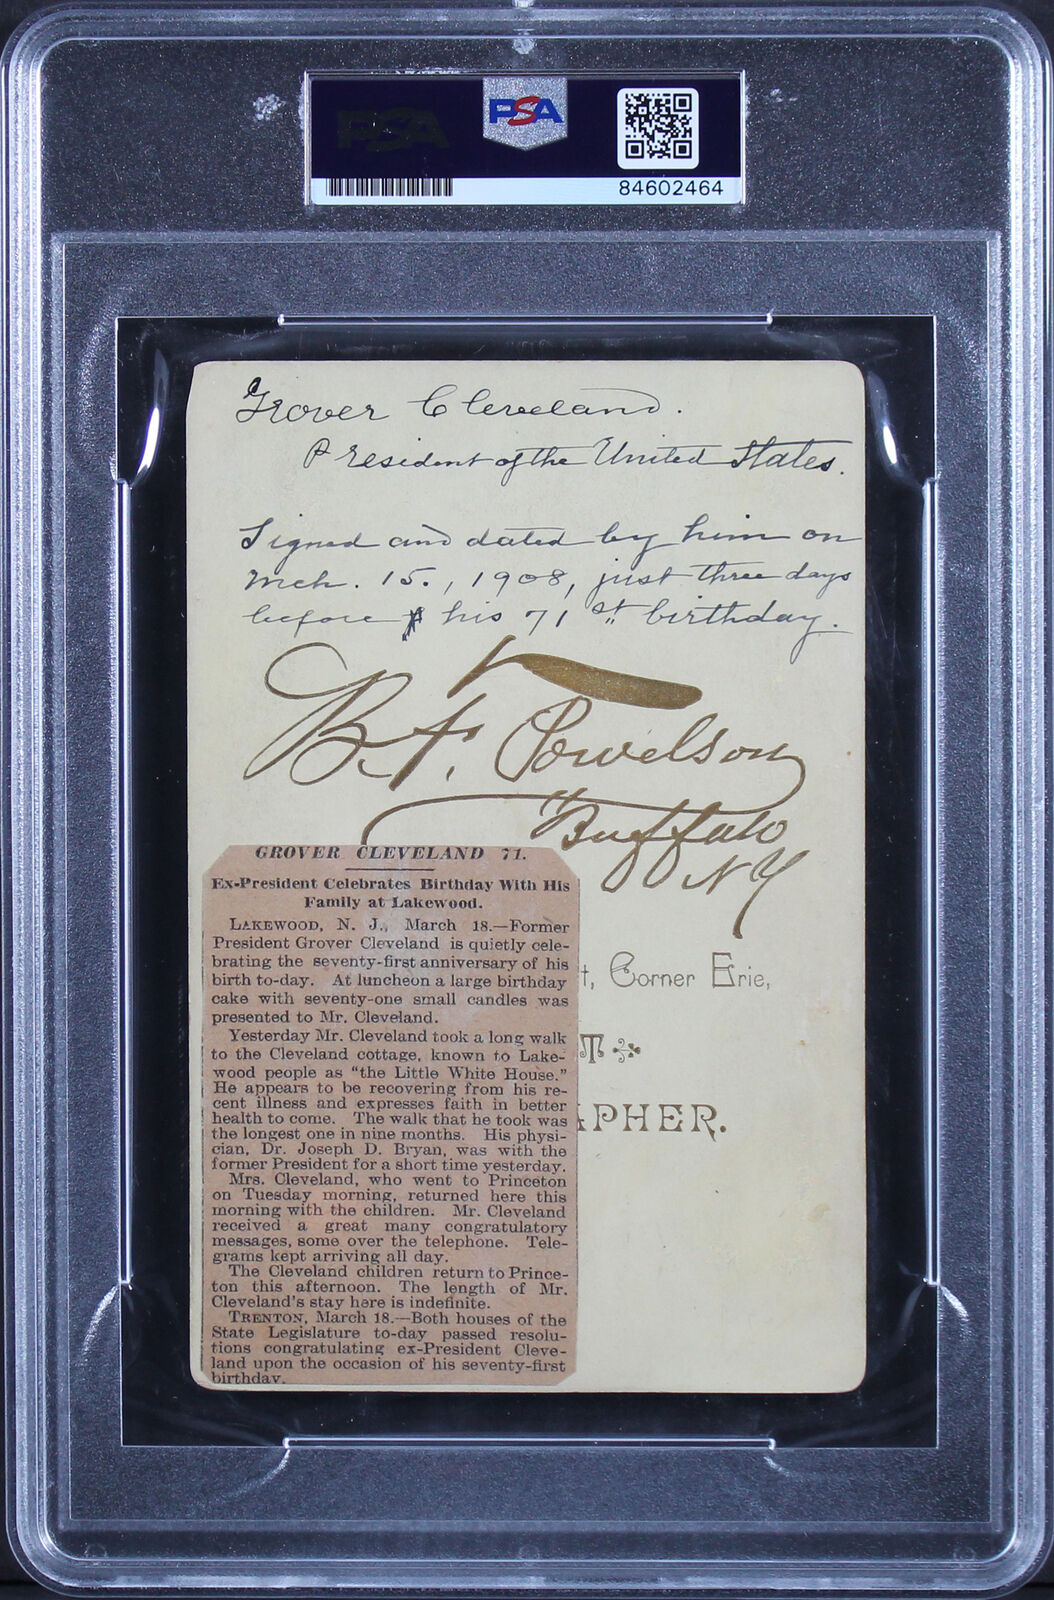 PSA
PSA
84602464
Grover Cleveland.
President of the United States.
Signed and dated by him on
Mch. 15., 1908, just three days
before his 71st birthday.
B.F. Powelson
Buffalo
N Y
GROVER CLEVELAND 71.
Ex-President Celebrates Birthday With His
Family at Lakewood.
LAKEWOOD, N. J., March 18.—Former
President Grover Cleveland is quietly cele-
brating the seventy-first anniversary of his
birth to-day. At luncheon a large birthday
cake with seventy-one small candles was
presented to Mr. Cleveland.
Yesterday Mr. Cleveland took a long walk
to the Cleveland cottage, known to Lake-
wood people as "the Little White House."
He appears to be recovering from his re-
cent illness and expresses faith in better
health to come. The walk that he took was
the longest one in nine months. His physi-
cian, Dr. Joseph D. Bryan, was with the
former President for a short time yesterday.
Mrs. Cleveland, who went to Princeton
on Tuesday morning, returned here this
morning with the children. Mr. Cleveland
received a great many congratulatory
messages, some over the telephone. Tele-
grams kept arriving all day.
The Cleveland children return to Prince-
ton this afternoon. The length of Mr.
Cleveland's stay here is indefinite.
TRENTON, March 18.—Both houses of the
State Legislature to-day passed resolu-
tions congratulating ex-President Cleve-
land upon the occasion of his seventy-first
birthday.
t, Corner Erie,
T
APHER.